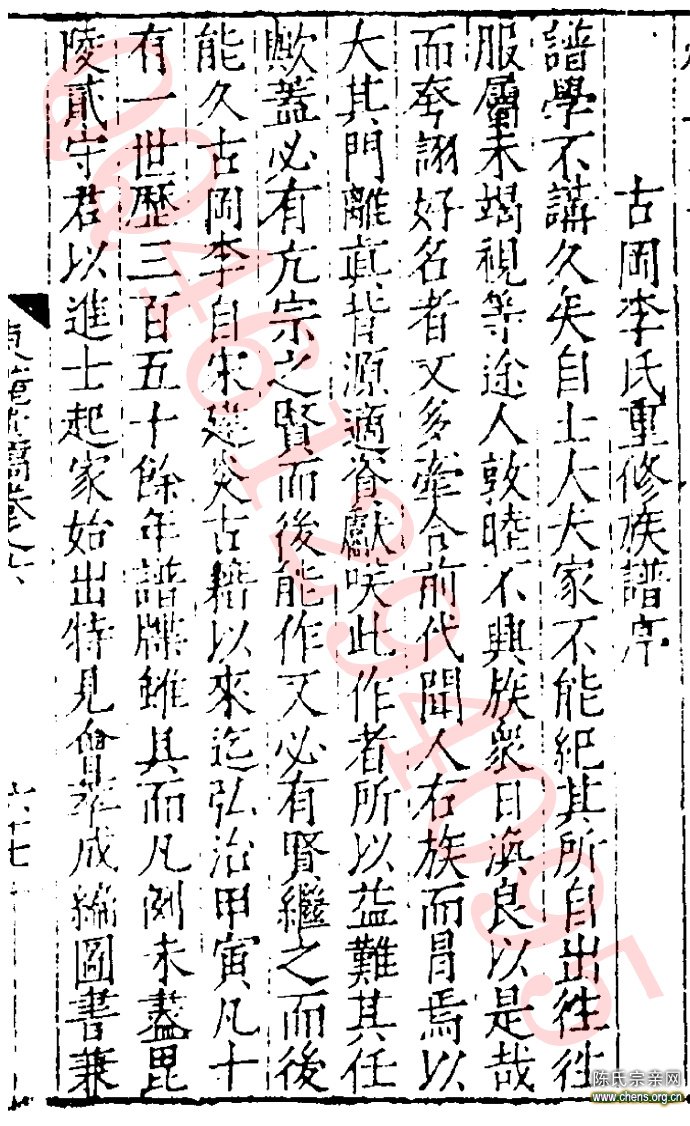 古岡李氏重修族譜序
譜學不講久矣自士大夫家不能紀其所自出徃徃
服屬未竭視等途人敦睦不興族衆日渙良以是哉
而夸詡好名者又多牽合前代聞人右族而冒焉以
大其門離眞背源適資獻唉此作者所以益難其任
歟蓋必有亢宗之賢而後能作又必有賢繼之而後
能久古岡李自宋建炎古籍以來迄弘治甲寅凡十
有一世歷三百五十餘年譜牒雖具而凡例未盡毘
陵貳守君以進士起家始出特見會萃成編圖書兼
卷之六
六十七
QQ461294095
陈氏宗亲网
www.chens.org.cn